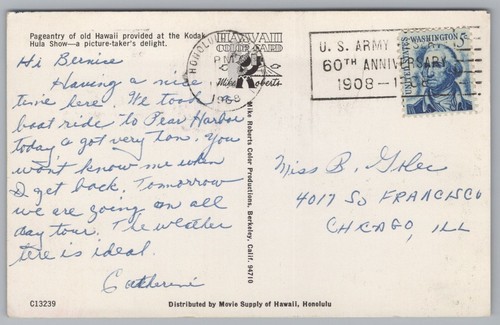 Pageantry of old Hawaii provided at the Kodak
Hula Show—a picture-taker's delight.
Hi Bernice
Having a nice
time here. We took
boat ride to Pear Harbor
today & got very tan. You
won't know me when
I get back. Tomorrow
we are going on all
day tour. The weather
here is ideal.
Catherine
C13239
HONOLULU
PM
1968
HAWAII
COLOR CARD
Mike Roberts
Mike Roberts Color Productions, Berkeley, Calif. 94710
U.S. ARMY
60TH ANNIVERSARY
1908-1
UNITED STATES
WASHINGTON
5c
Miss B.
4017 SO FRANCISCO
CHICAGO, ILL
Distributed by Movie Supply of Hawaii, Honolulu